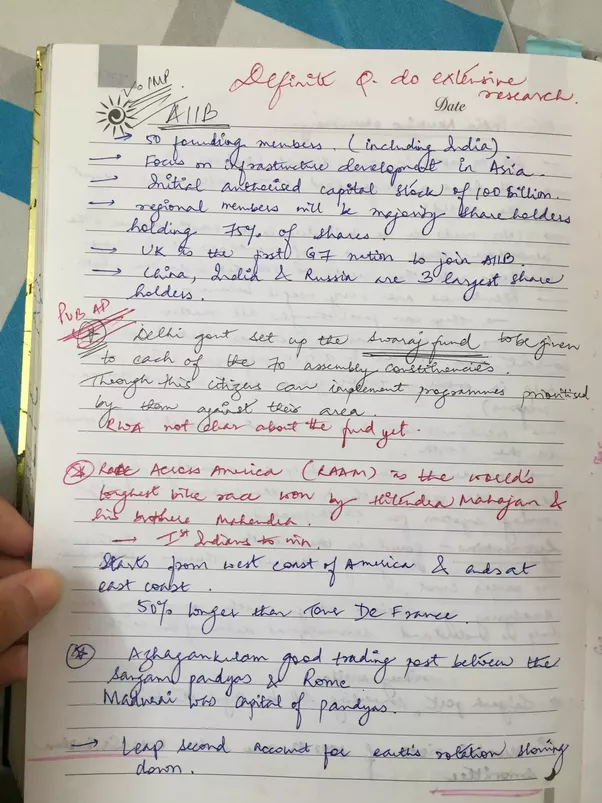 V. IMP
Definite Q. do extensive
research.
Date
AIIB
→ 50 founding members. (including India)
→ Focus on infrastructure development in Asia.
→ Initial authorised capital stock of 100 billion.
→ regional members will be majority share holders
holding 75% of shares.
→ UK is the first G7 nation to join AIIB.
→ China, India & Russia are 3 largest share
holders.
PUB AP
* Delhi govt set up the Swaraj fund to be given
to each of the 70 assembly constituencies.
Through this citizens can implement programmes prioritised
by them against their area.
RWA not clear about the fund yet.
* Race Across America (RAAM) is the world's
longest bike race won by Hitendra Mahajan &
his brother Mahendra.
→ Ist Indians to win.
Starts from west coast of America & ends at
east coast.
50% longer than Tour De France.
* Azhagankulam good trading post between the
Sangam pandyas & Rome
Madurai was capital of pandyas.
→ Leap second account for earth's rotation slowing
down.